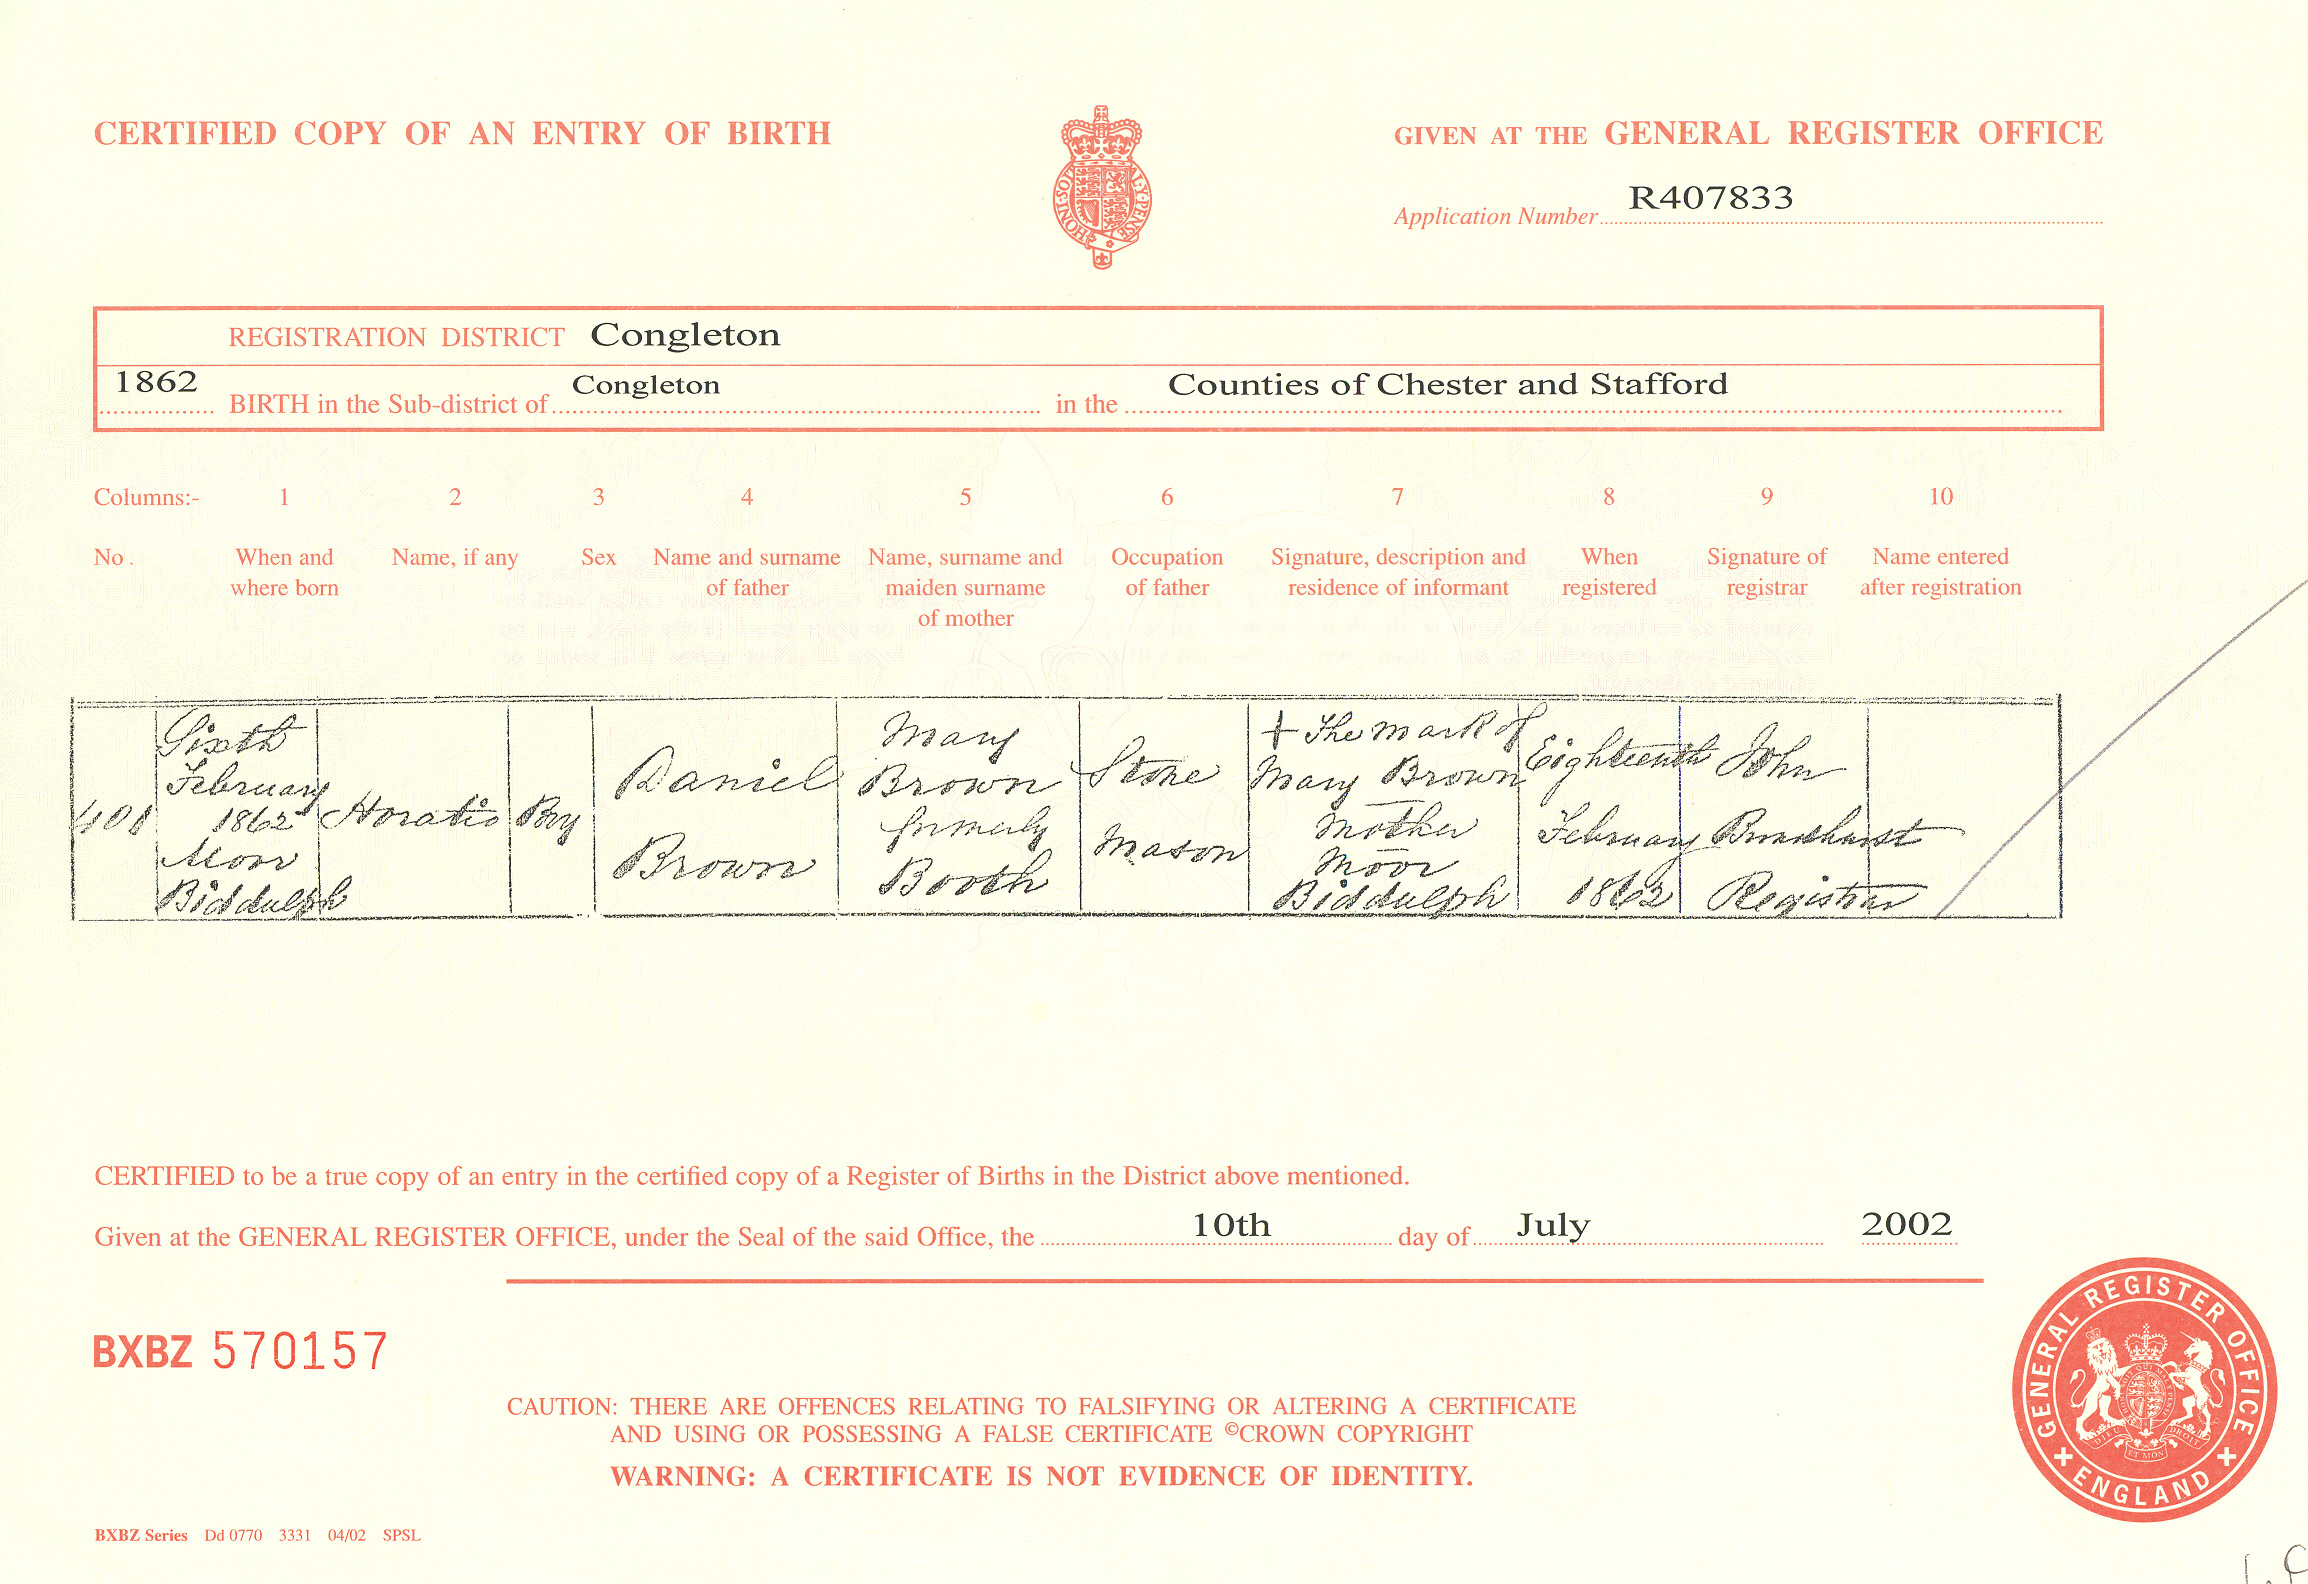 CERTIFIED COPY OF AN ENTRY OF BIRTH
GIVEN AT THE GENERAL REGISTER OFFICE
HONI·SOI
AL·Y·PENSE
Application Number R407833
REGISTRATION DISTRICT Congleton
1862 BIRTH in the Sub-district of Congleton in the Counties of Chester and Stafford
Columns:- 1 2 3 4 5 6 7 8 9 10
No. When and where born
Name, if any
Sex
Name and surname of father
Name, surname and maiden surname of mother
Occupation of father
Signature, description and residence of informant
When registered
Signature of registrar
Name entered after registration
401
Sixth
February
1862
Moor
Biddulph
Horatio
Boy
Daniel
Brown
Mary
Brown
formerly
Booth
Stone
Mason
+ The mark of
Mary Brown
Mother
Moor
Biddulph
Eighteenth
February
1862
John
Registrar
CERTIFIED to be a true copy of an entry in the certified copy of a Register of Births in the District above mentioned.
Given at the GENERAL REGISTER OFFICE, under the Seal of the said Office, the 10th day of July 2002
BXBZ 570157
CAUTION: THERE ARE OFFENCES RELATING TO FALSIFYING OR ALTERING A CERTIFICATE
AND USING OR POSSESSING A FALSE CERTIFICATE ©CROWN COPYRIGHT
WARNING: A CERTIFICATE IS NOT EVIDENCE OF IDENTITY.
GENERAL REGISTER OFFICE
ENGLAND
DIEU ET MON DROIT
BXBZ Series Dd 0770 3331 04/02 SPSL